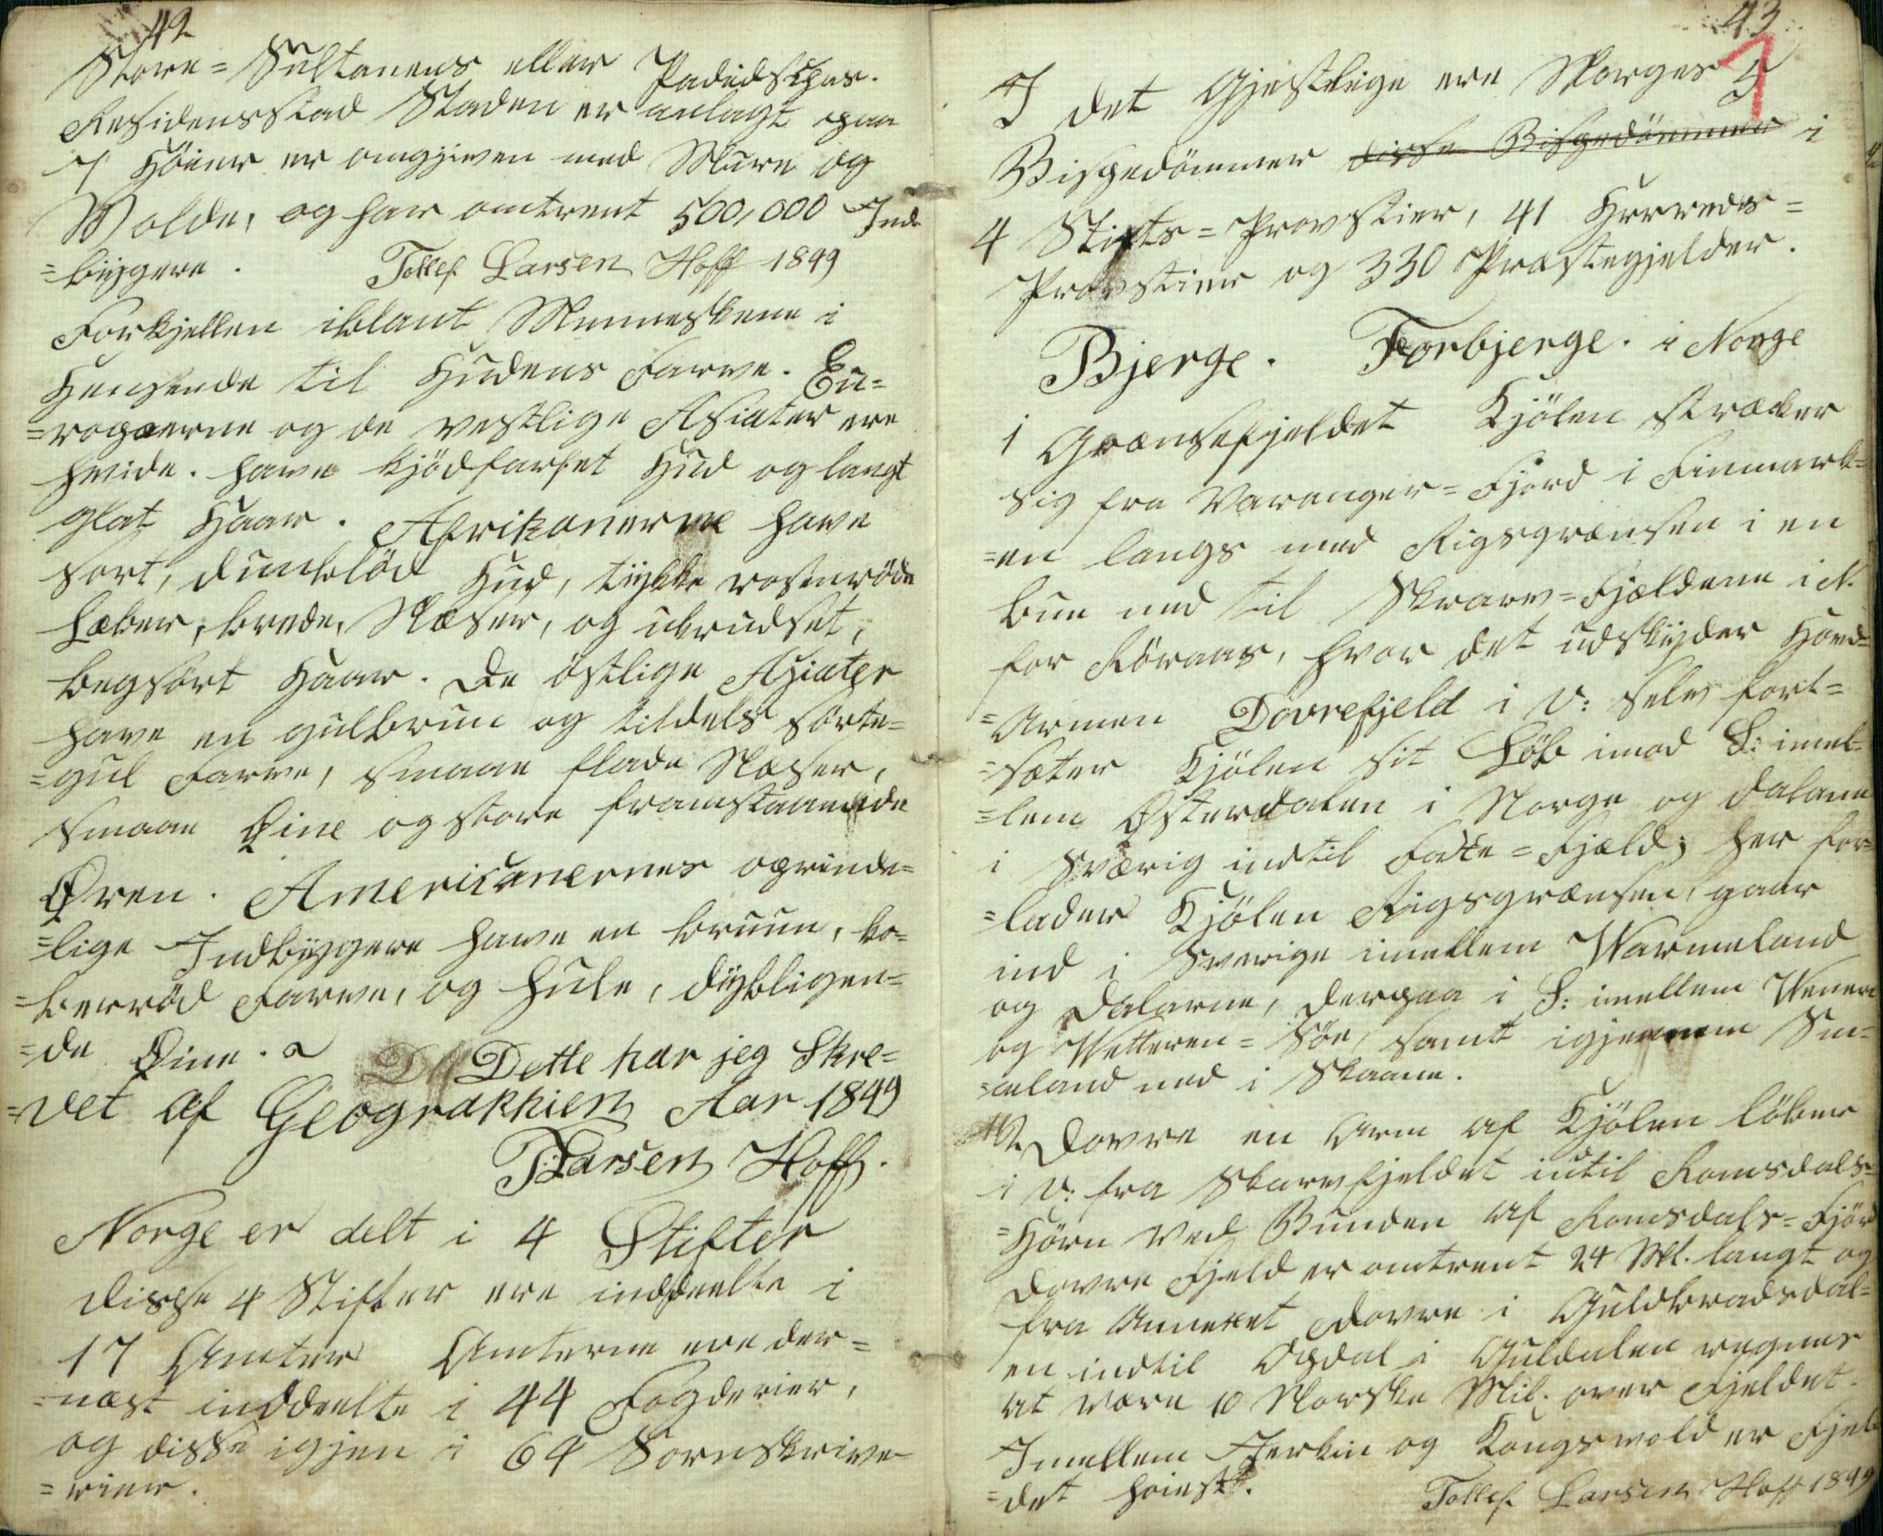 42
Store=Sultanens eller Padidschas.
Residensstad Staden er anlagt paa
7 Höier er omgjiven med Mure og
Wolde, og har omtrent 500,000 Ind
=byggere. Tollef Larsen Hoff 1849
Forskjellen iblant Menneskene i
Henseende til Hudens Farve. Eu=
=ropæerne og de vestlige Asiater ere
hvide. have kjödfarfet Hud og langt
glat Haar. Afrikanerne have
sort, dunklöd Hud, tykke rosenröde
Læber, brede, Næser, og ukrudset,
begsort Haar. De östlige Asiater
have en gulbrun og tildels sorte=
=gul Farve, smaae flade Næser,
smaae Øine og store framstaaende
Øren. Americanernes oprinde=
=lige Indbyggere have en bruun, ko=
=berröd Farve, og hule, dybligen=
=de Øine.
Dette har jeg Skre=
=vet af Geograkhien Aar 1849
T: Larsen Hoff.
Norge er delt i 4 Stifter
disse 4 Stifter ere inddeelte i
17 Amter Amterne ere der=
=næst inddeelte i 44 Fogderier,
og disse igjen i 64 Sornskrive
=rier.
43
I det Gjestlige ere Norges 5
Bispedömmer disse Bispedömmer i
4 Stifts=Provstier, 41 Herreds=
Provstier og 330 Præstegjelder.
Bjerge. Forbjerge. i Norge
1 Grænsefjeldet Kjölen strækker
sig fra Varanger=Fjord i Finmark=
=en langs med Rigsgrænsen i en
bue ned til Skrarv=Fjældene i N.
for Röraas, hvor det udskyder Hoved=
=Armen Dovrefjeld i V: selv fort=
=sæter Kjölen sit Löb imod S: imel=
=lem Østerdalen i Norge og Dalarne
i Sværig indtil Faxe=Fjæld; her for=
=lader Kjölen Rigsgrænsen, gaar
ind i Sverige imellem Warmeland
og Dalarne, derpaa i S: imellem Wenern
og Wetteren=Söe, samt igjennem Sm=
=aland ned i Skaane.
2. Dovre en Arm af Kjölen löber
i V: fra Skarvfjeldet indtil Romsdals=
=Horn ved Bunden af Romsdals=Fjörd
Dovre Fjeld er omtrent 24 Ml. langt og
fra Annexet Dovre i Guldbradsdal=
en indtil Opdal i Guldalen regnes
at være 10 Norske Mil. over Fjeldet.
Imellem Jerkin og Kongsvold er Fjel
=det höiest.
Tollef Larsen Hoff 1849